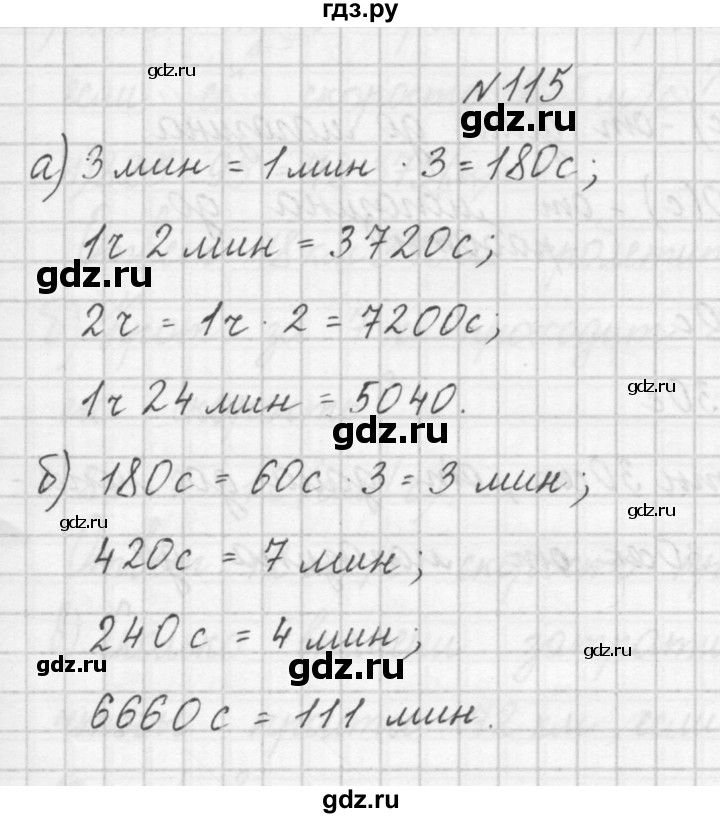 гдз.ру
gdz.ru
№115
gdz.ru
а) 3 мин = 1 мин · 3 = 180с;
1ч 2 мин = 3720с;
gdz.ru
2ч = 1ч · 2 = 7200с;
gdz.ru
1ч 24 мин = 5040.
gdz.ru
б) 180с = 60с · 3 = 3 мин;
gdz.ru
gdz.ru
420с = 7 мин;
240с = 4 мин;
gdz.ru
gdz.ru
gdz.ru
6660с = 111 мин.
gdz.ru